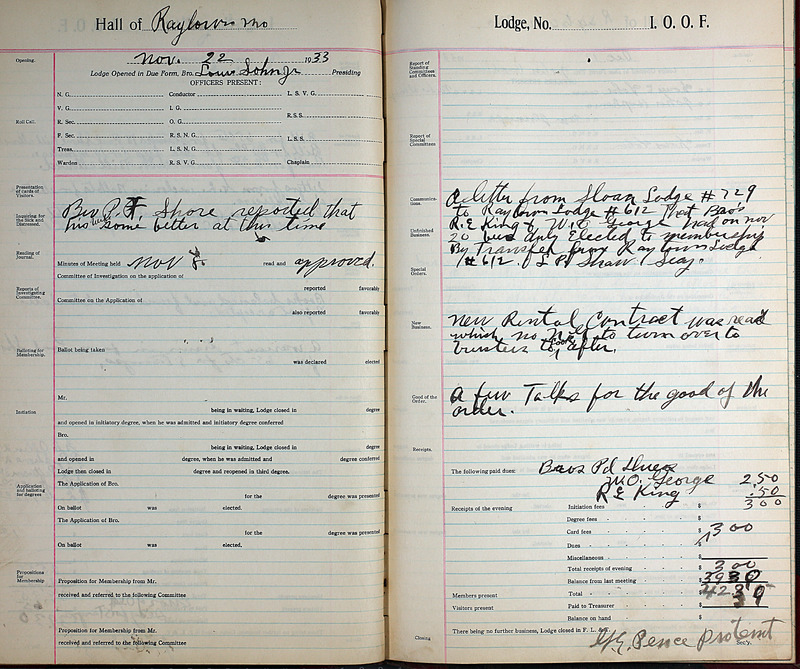 Hall of Raytown Mo
Nov. 22 1933
Opening.
Lodge Opened in Due Form, Bro. Louis Sohn Jr Presiding
OFFICERS PRESENT:
N. G. Conductor L. S. V. G.
V. G. I. G.
R. S. S.
Roll Call.
R. Sec. O. G.
F. Sec. R. S. N. G.
L. S. S.
Treas. L. S. N. G.
Warden R. S. V. G. Chaplain
Presentation of cards of Visitors.
Inquiring for the Sick and Distressed.
Bro P. F. Shore reported that
his some better at this time
Reading of Journal.
Minutes of Meeting held Nov 8. read and approved.
Committee of Investigation on the application of
Reports of Investigating Committee.
reported favorably
Committee on the Application of
also reported favorably
Balloting for Membership.
Ballot being taken
was declared elected
Mr.
Initiation
being in waiting, Lodge closed in degree
and opened in initiatory degree, when he was admitted and initiatory degree conferred
Bro.
being in waiting, Lodge closed in degree
and opened in degree, when he was admitted and degree conferred
Lodge then closed in degree and reopened in third degree.
Application and balloting for degrees
The Application of Bro.
for the degree was presented
On ballot was elected.
The Application of Bro.
for the degree was presented
On ballot was elected.
Propositions for Membership
Proposition for Membership from Mr.
received and referred to the following Committee
Proposition for Membership from Mr.
received and referred to the following Committee
Lodge, No. I. O. O. F.
Report of Standing Committees and Officers.
Report of Special Committees
Communications.
Unfinished Business.
A letter from Sloan Lodge # 729
to Raytown Lodge # 612 That Bro's
R.E. King & W.O. George had on Nov
20 been duly Elected to membership
By Transfer from Raytown Lodge
# 612. of L P. Shaw Secy.
Special Orders.
New Business.
New Rental Contract was read
which no to turn over to
trustees to look after.
Good of the Order.
a few Talks for the good of the
order.
Receipts.
The following paid dues: Bros Pd Dues
W.O. George 2.50
R E King .50
3 00
Receipts of the evening Initiation fees $
Degree fees $
Card fees $ 3 00
Dues $
Miscellaneous $
Total receipts of evening $ 3 00
Balance from last meeting $ 39 30
Members present Total $ 42 30
Visitors present Paid to Treasurer $
Balance on hand $
Closing
There being no further business, Lodge closed in F. L. &T.
Pence Protemt
Sec'y.